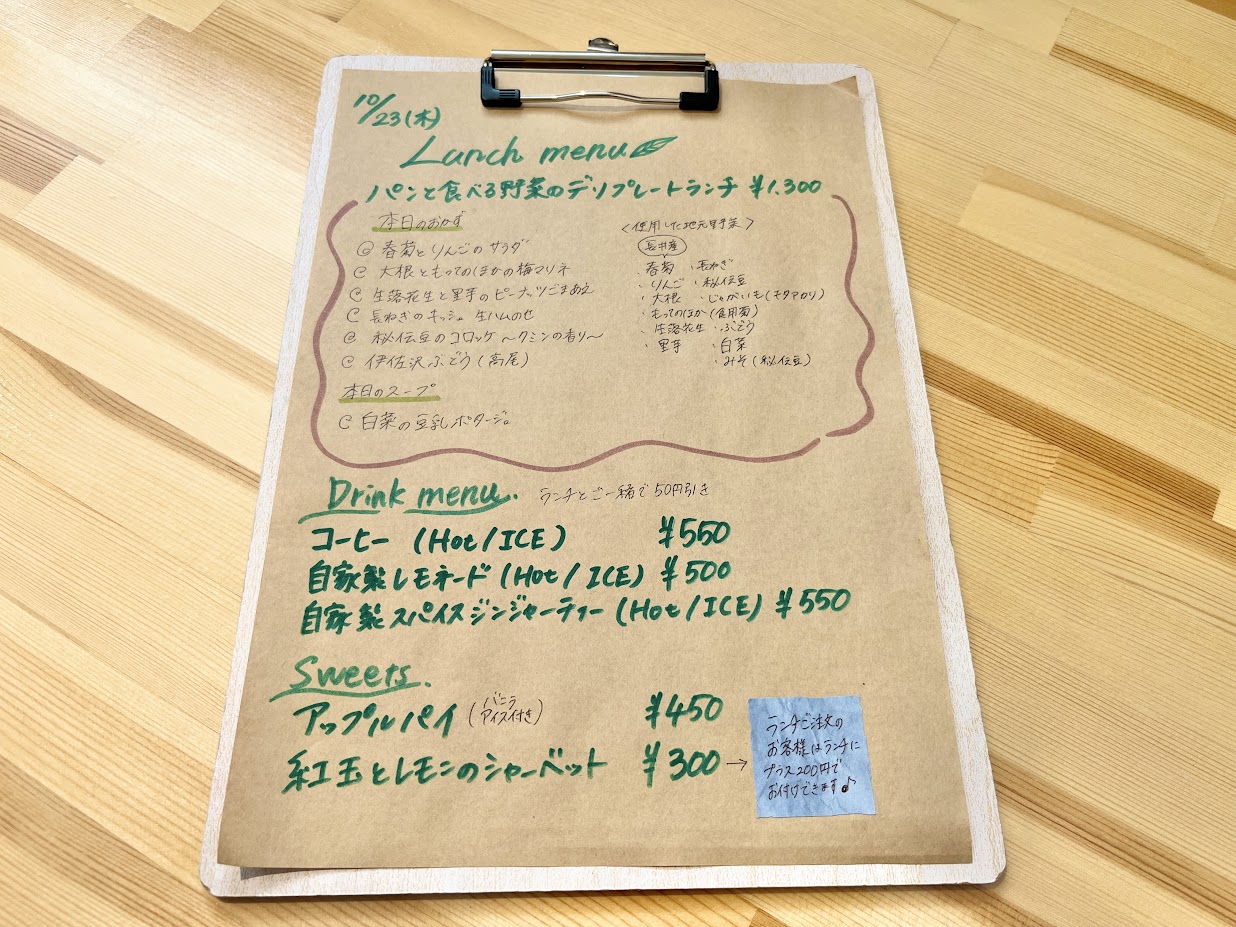 10/23(木)
Lunch menu
パンと食べる野菜のデリプレートランチ ¥1,300
本日のおかず
春菊とりんごのサラダ
大根ともってのほかの梅マリネ
生落花生と里芋のピーナッツごまあえ
長ねぎのキッシュ 生ハムのせ
秘伝豆のコロッケ 〜クミンの香り〜
伊佐沢ぶどう(高尾)
本日のスープ
白菜の豆乳ポタージュ
<使用した地元野菜>
長井産
・春菊 ・長ねぎ
・りんご ・秘伝豆
・大根 ・じゃがいも(キタアカリ)
・もってのほか(食用菊)
・生落花生 ・ぶどう
・里芋 ・白菜
・みそ(秘伝豆)
Drink menu.
ランチとご一緒で50円引き
コーヒー (Hot/ICE) ¥550
自家製レモネード(Hot/ICE) ¥500
自家製スパイスジンジャーティー(Hot/ICE) ¥550
Sweets.
アップルパイ(バニラアイス付き) ¥450
紅玉とレモンのシャーベット ¥300→
ランチご注文の
お客様はランチに
プラス200円で
お付けできます♪